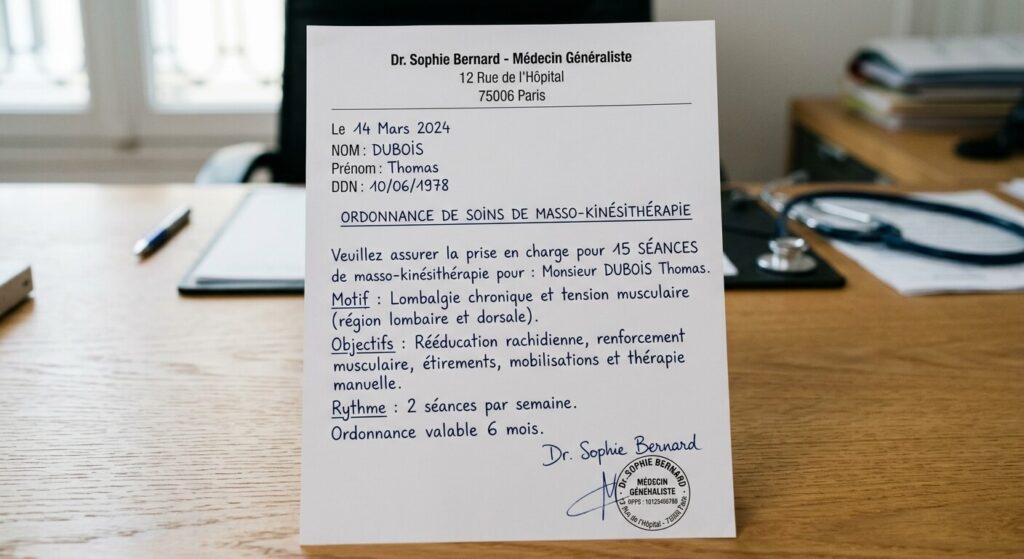 Dr. Sophie Bernard - Médecin Généraliste
12 Rue de l'Hôpital
75006 Paris
Le 14 Mars 2024
NOM : DUBOIS
Prénom : Thomas
DDN : 10/06/1978
ORDONNANCE DE SOINS DE MASSO-KINÉSITHÉRAPIE
Veuillez assurer la prise en charge pour 15 SÉANCES
de masso-kinésithérapie pour : Monsieur DUBOIS Thomas.
Motif : Lombalgie chronique et tension musculaire
(région lombaire et dorsale).
Objectifs : Rééducation rachidienne, renforcement
musculaire, étirements, mobilisations et thérapie
manuelle.
Rythme : 2 séances par semaine.
Ordonnance valable 6 mois.
Dr. Sophie Bernard
Dr. SOPHIE BERNARD
MÉDECIN
Rue de l'Hôpital